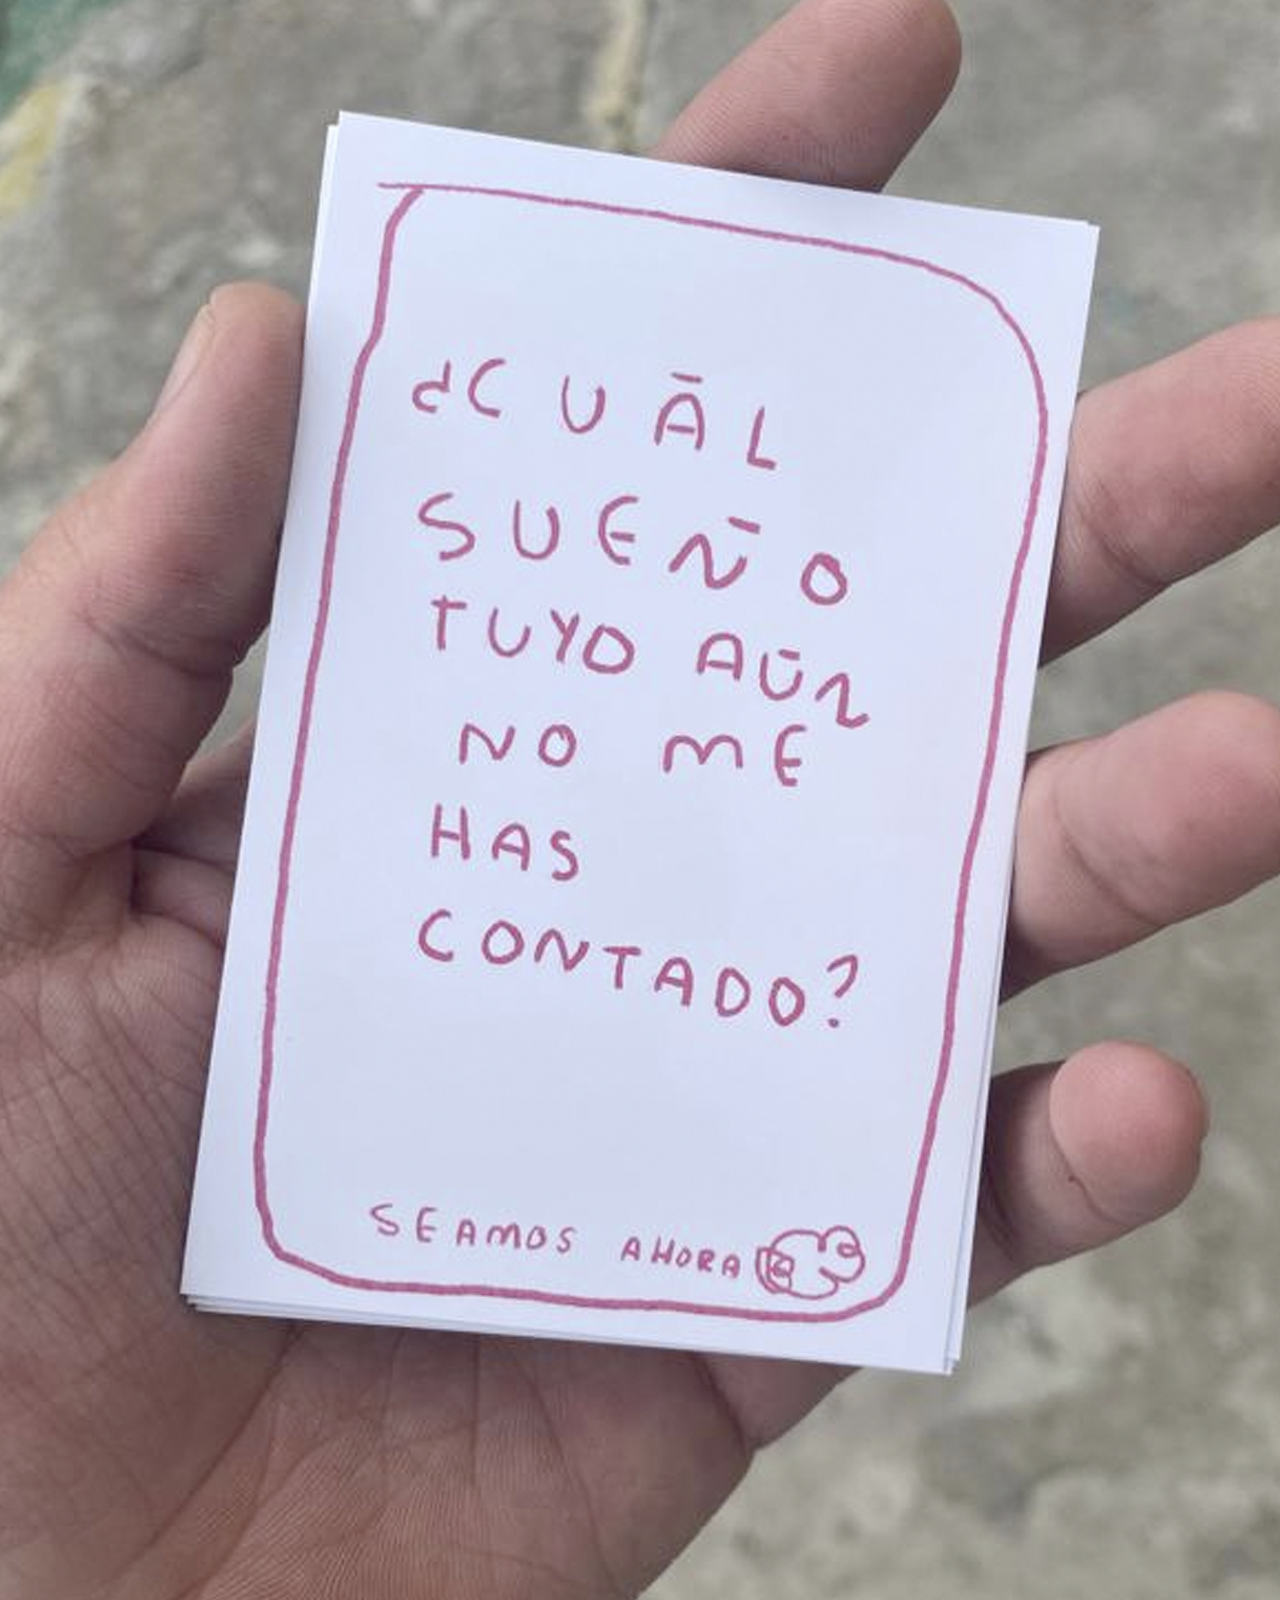 ¿CUÁL
SUEÑO
TUYO AÚN
NO ME
HAS
CONTADO?
SEAMOS AHORA